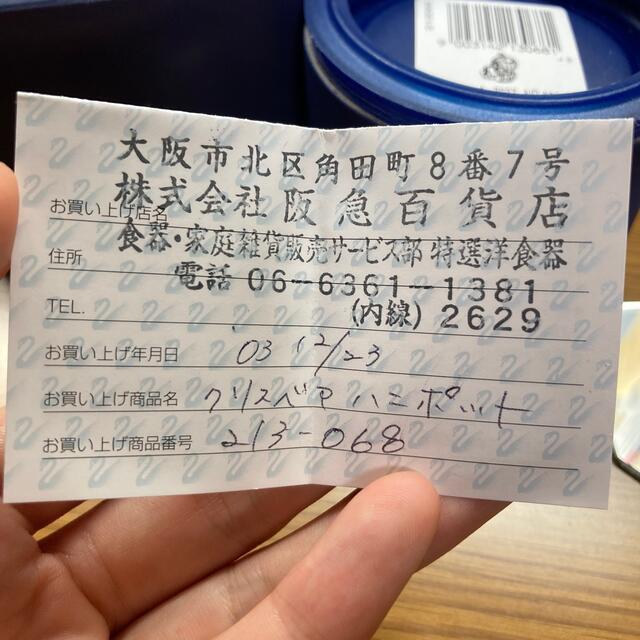 大阪市北区角田町8番7号
お買い上げ店名 株式会社阪急百貨店
食器・家庭雑貨販売サービス部 特選洋食器
住所
電話 06-6361-1381
TEL. (内線) 2629
お買い上げ年月日 '03 12/23
お買い上げ商品名 クリスベア ハニーポット
お買い上げ商品番号 213-068